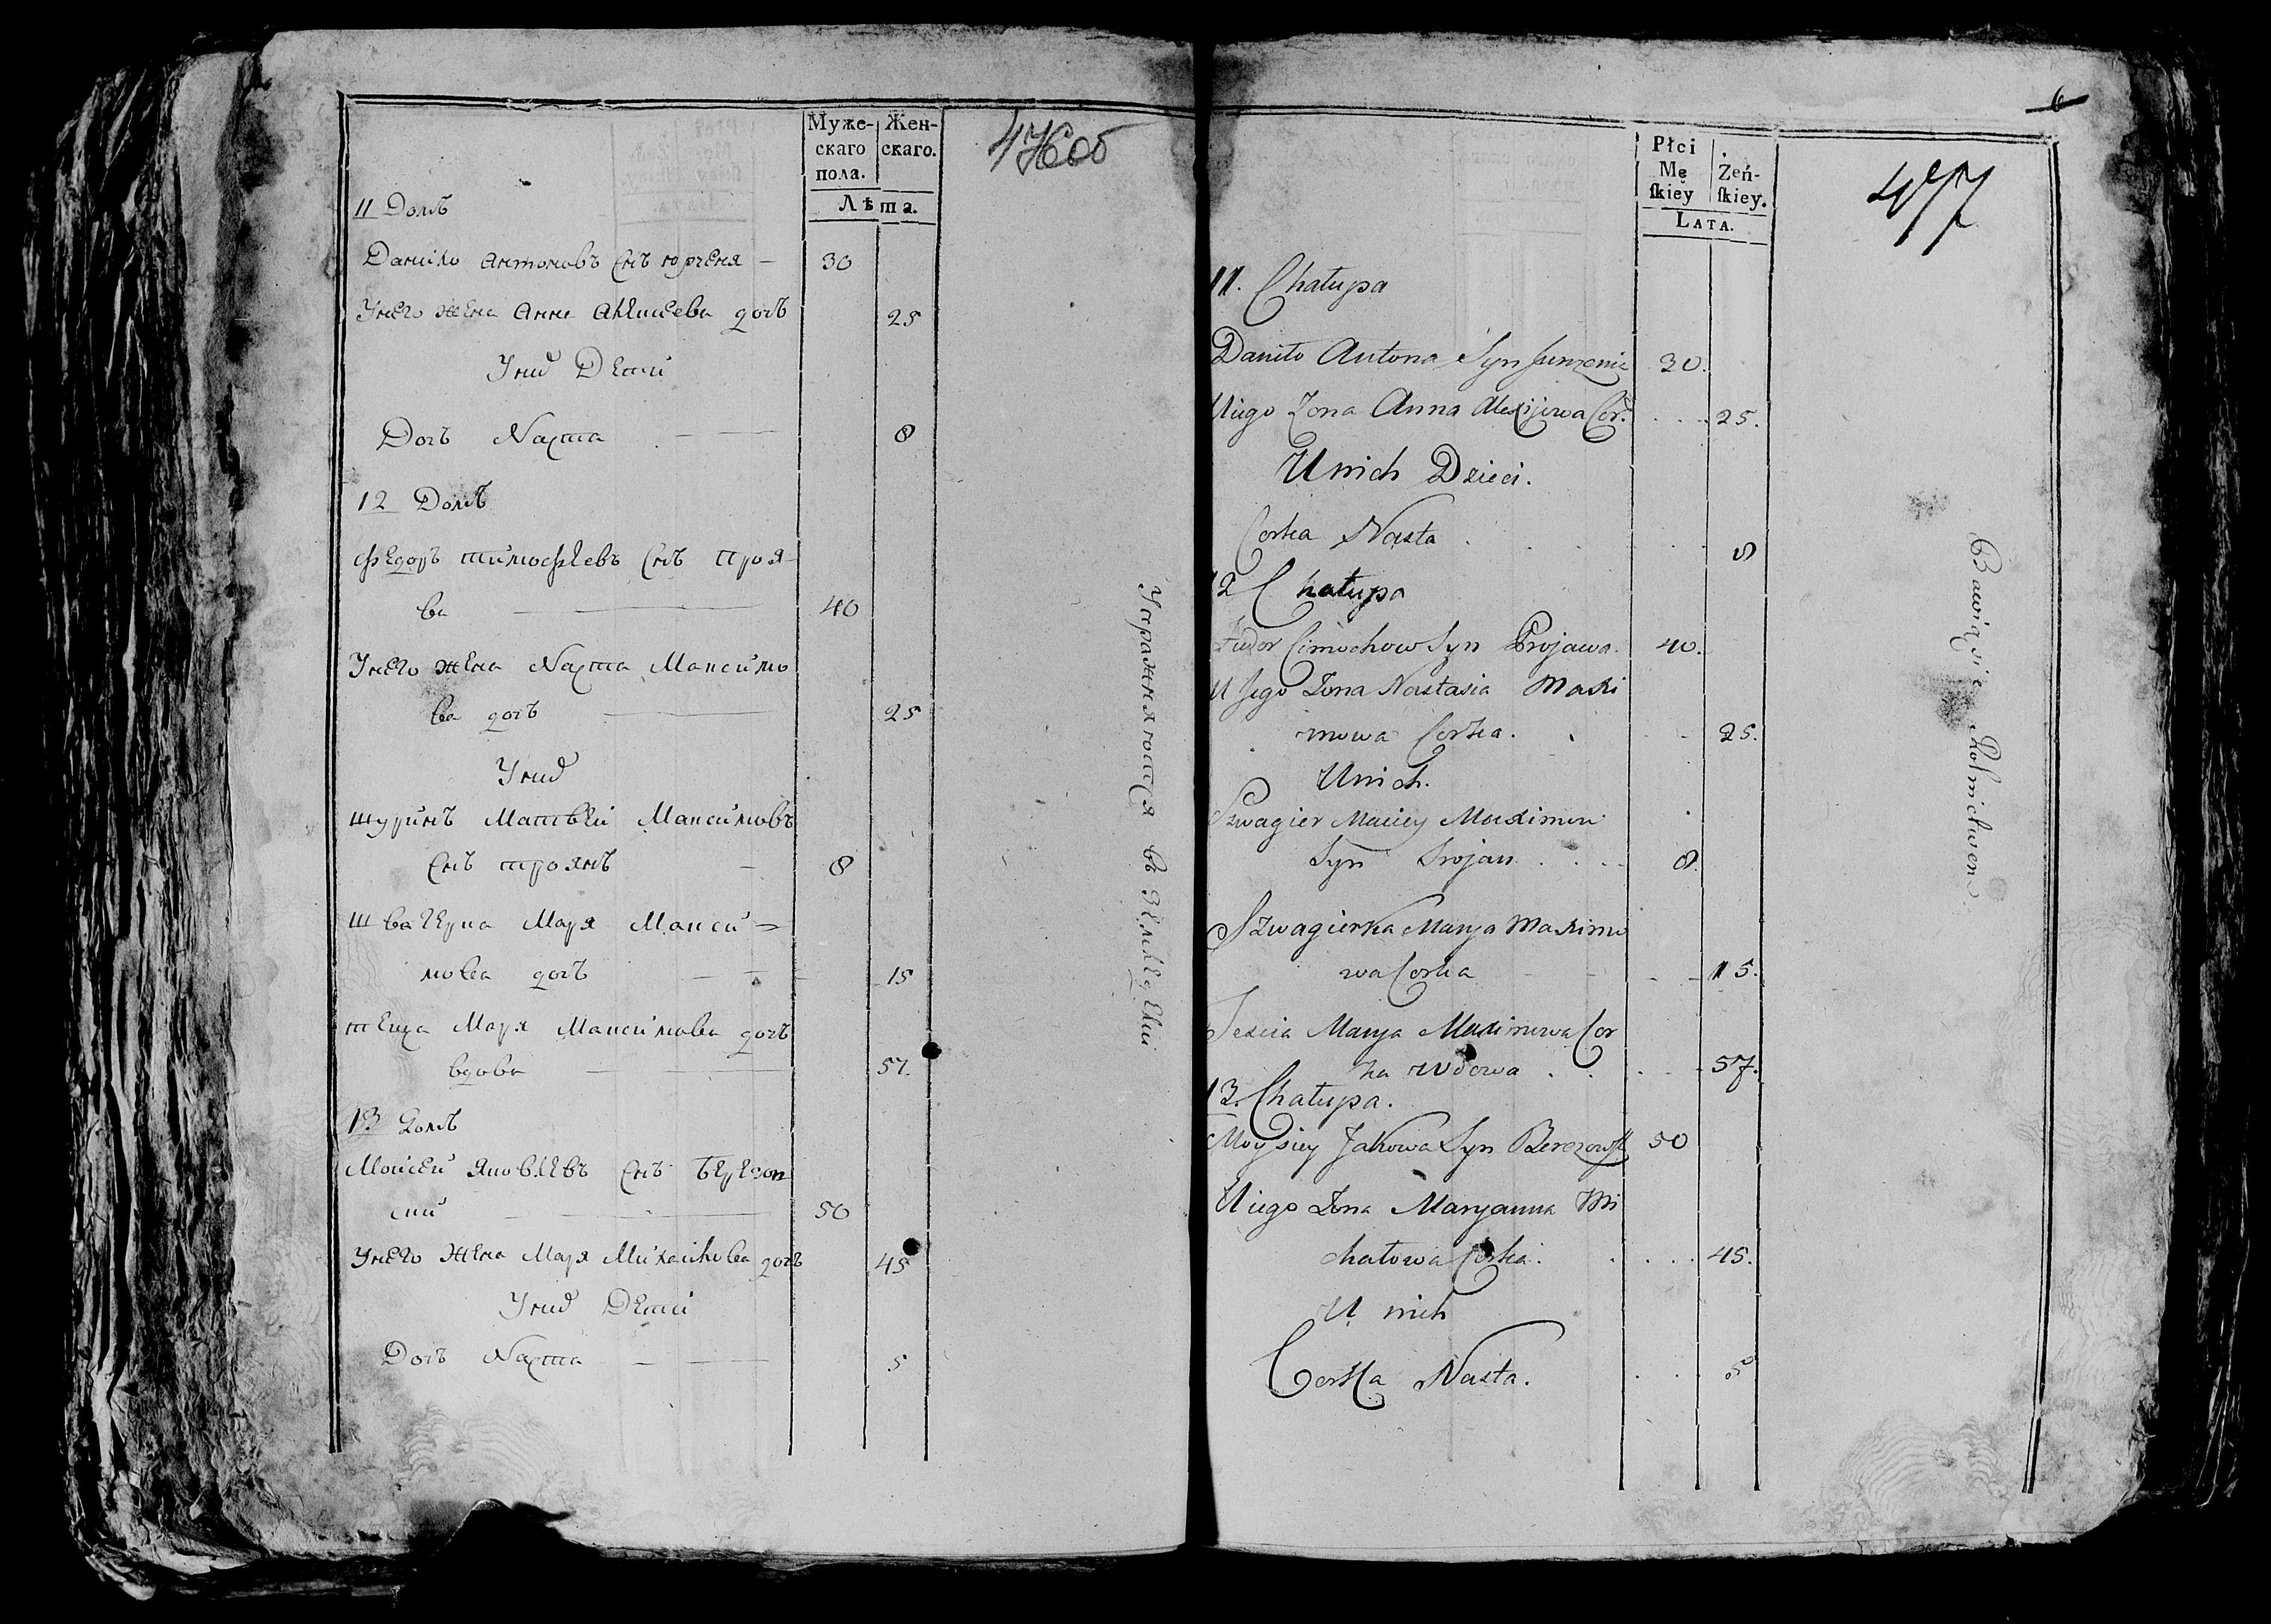 Муже-
скаго
пола.
Жен-
скаго.
Лѣта.
476 об
11 Домъ
Данило Антоновъ снъ юрченя — 30
Унего жена Анна Алексеева дочь 25
Уних Дети
Дочь Наста — — 8
12 Домъ
Федоръ тимофѣевъ снъ Проя-
ва — 40
Унего жена Наста Максимо
ва дочь — 25
Уних
шуринъ Матвѣй Максимовъ
снъ троянъ — 8
швагерка Маря Макси=
мова дочь — — 15
теща Маря Максимова дочь
вдова — — 57.
13 Домъ
Моисей Яковлевъ снъ Березов
ский — 50
Унего жена Маря Михайлова дочь 45
Уних Дети
Дочь Наста — — 5
Упражняются въ Земледелии
6
Płci
Mę
ſkiey
Żeń-
ſkiey.
LATA.
477
11. Chałupa
Daniło Antona Syn Jurczenia 30.
Uiego Żona Anna Alexijewa Cor. . . . 25.
Unich Dzieci.
Corka Nasta . . . . 8
12 Chałupa
Fiedor Cimochow Syn Projawa. 40.
U Jego Żona Nastasia Maxi
mowa Corka. . - - 25.
Unich.
Szwagier Maciey Maximow
Syn Trojan . . . . 8.
Szwagierka Marya Maximo
wa Corka - - - - 15.
Teścia Marya Maximowa Cor
ka wdowa . . . . 57.
13. Chałupa.
Moysiey Jakowa Syn Berezowsk 50
Uiego Żona Maryanna Mi
chałowa Corka. . . . . 45.
U nich
Corka Nasta. . . . 5
Bawią się Rolnictwem